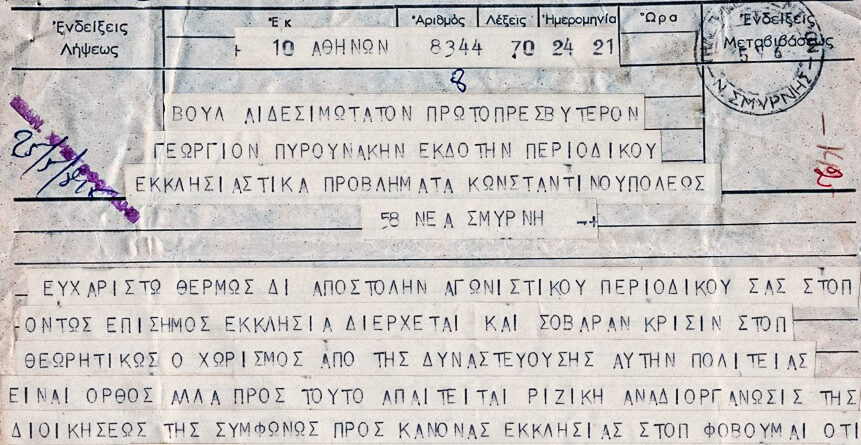 Ἐνδείξεις Λήψεως
Ἐκ
Ἀριθμός
Λέξεις
Ἡμερομηνία
Ὥρα
Ἐνδείξεις Μεταβιβάσεως
+ 10 ΑΘΗΝΩΝ 8344 70 24 21
8
ΒΟΥΛ ΑΙΔΕΣΙΜΩΤΑΤΟΝ ΠΡΩΤΟΠΡΕΣΒΥΤΕΡΟΝ
ΓΕΩΡΓΙΟΝ ΠΥΡΟΥΝΑΚΗΝ ΕΚΔΟΤΗΝ ΠΕΡΙΟΔΙΚΟΥ
ΕΚΚΛΗΣΙΑΣΤΙΚΑ ΠΡΟΒΛΗΜΑΤΑ ΚΩΝΣΤΑΝΤΙΝΟΥΠΟΛΕΩΣ
58 ΝΕΑ ΣΜΥΡΝΗ -+
Ν. ΣΜΥΡΝΗΣ
_ ΕΥΧΑΡΙΣΤΩ ΘΕΡΜΩΣ ΔΙ ΑΠΟΣΤΟΛΗΝ ΑΓΩΝΙΣΤΙΚΟΥ ΠΕΡΙΟΔΙΚΟΥ ΣΑΣ ΣΤΟΠ
ΟΝΤΩΣ ΕΠΙΣΗΜΟΣ ΕΚΚΛΗΣΙΑ ΔΙΕΡΧΕΤΑΙ ΚΑΙ ΣΟΒΑΡΑΝ ΚΡΙΣΙΝ ΣΤΟΠ
ΘΕΩΡΗΤΙΚΩΣ Ο ΧΩΡΙΣΜΟΣ ΑΠΟ ΤΗΣ ΔΥΝΑΣΤΕΥΟΥΣΗΣ ΑΥΤΗΝ ΠΟΛΙΤΕΙΑΣ
ΕΙΝΑΙ ΟΡΘΟΣ ΑΛΛΑ ΠΡΟΣ ΤΟΥΤΟ ΑΠΑΙΤΕΙΤΑΙ ΡΙΖΙΚΗ ΑΝΑΔΙΟΡΓΑΝΩΣΙΣ ΤΗΣ
ΔΙΟΙΚΗΣΕΩΣ ΤΗΣ ΣΥΜΦΩΝΩΣ ΠΡΟΣ ΚΑΝΟΝΑΣ ΕΚΚΛΗΣΙΑΣ ΣΤΟΠ ΦΟΒΟΥΜΑΙ ΟΤΙ